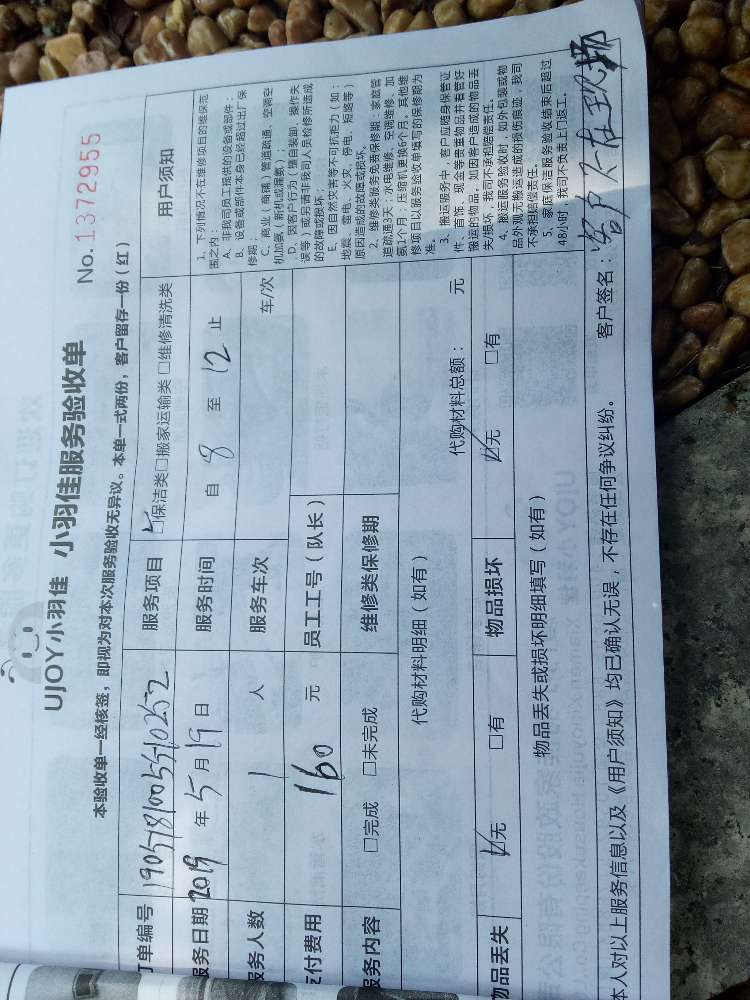 UJOY小羽佳 小羽佳服务验收单
No. 1372955
本验收单一经核签，即视为对本次服务验收无异议。本单一式两份，客户留存一份（红）
订单编号 服务项目 □保洁类□搬家运输类 □维修清洗类 用户须知
服务日期 2019 年 5 月 19 日 服务时间 自 8 至 12 止
服务人数 1 人 服务车次 车/次
支付费用 160 元 员工工号（队长）
服务内容 □完成 □未完成 维修类保修期
代购材料明细（如有） 代购材料总额： 元
物品丢失 □无 □有 物品损坏 □无 □有
物品丢失或损坏明细填写（如有）
1、下列情况不在维修项目的维保范
围之内：
A、非我司员工提供的设备或部件；
B、设备或部件本身已经超过出厂保
修期；
C、商业（商铺）管道疏通、空调空
机加氨、新机或漏氨；
D、因客户行为（擅自装卸、操作失
误等）或另请非我司人员检修所造成
的故障或损坏；
E、因自然灾害等不可抗拒力（如：
地震、雷电、火灾、停电、短路等）
原因造成的故障或损坏。
2、维修类服务免费保修期：家庭管
道疏通3天；水电维修、空调维修、加
氨1个月；压缩机更换6个月。其他维
修项目以服务验收单填写的保修期为
准。
3、搬运服务中，客户应随身保管证
件、首饰、现金等贵重物品并看管好
搬运的物品。如因客户造成的物品丢
失/损坏，我司不承担赔偿责任。
4、搬运服务验收时，如外包装或物
品外观无搬运造成的损伤痕迹，我司
不承担赔偿责任。
5、家庭保洁服务验收结束后超过
48小时，我司不负责上门返工。
本人对以上服务信息以及《用户须知》均已确认无误，不存在任何争议纠纷。 客户签名：客户不在现场